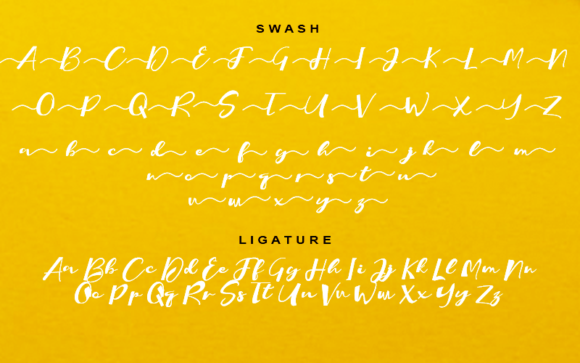 SWASH
A B C D E F G H I J K L M N
O P Q R S T U V W X Y Z
a b c d e f g h i j k l m
n o p q r s t u
v w x y z
LIGATURE
Aa Bb Cc Dd Ee Ff Gg Hh Ii Jj Kk Ll Mm Nn
Oo Pp Qq Rr Ss Tt Uu Vv Ww Xx Yy Zz